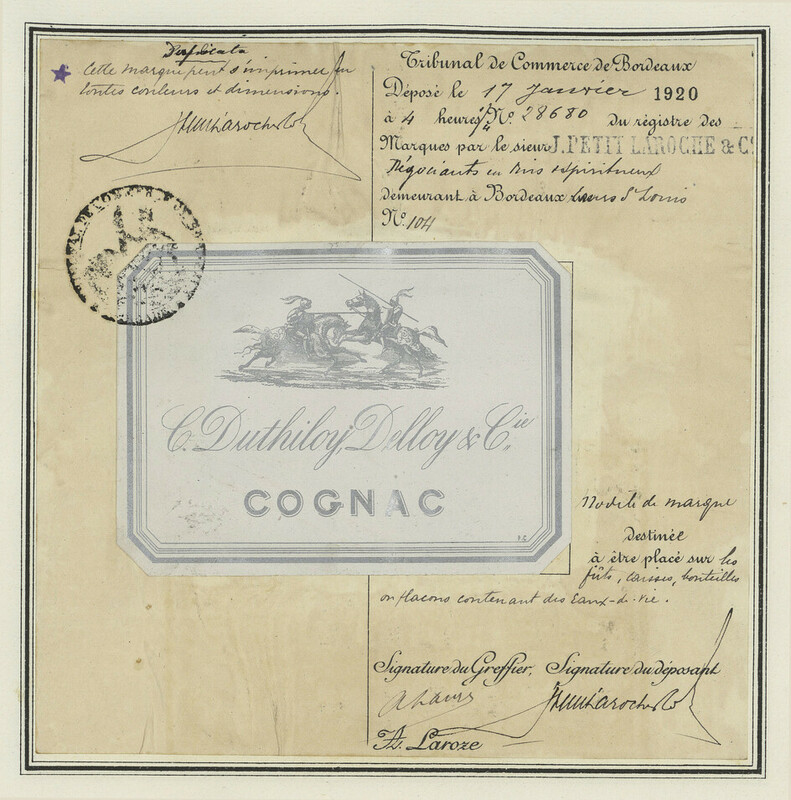 Duplicata
Cette marque peut s'imprimer en
toutes couleurs et dimensions.
Tribunal de Commerce de Bordeaux
Déposé le 17 Janvier 1920
à 4 heures Nº 28680 du régistre des
Marques par le sieur J. PETIT LAROCHE & Cie
Négociants en Vins & Spiritueux
demeurant à Bordeaux Cours St Louis
Nº 104
C. Duthiloy, Delloy & Cie
COGNAC
Modèle de marque
destinée
à être placé sur les
fûts, caisses, bouteilles
ou flacons contenant des Eaux-de-vie.
Signature du Greffier, Signature du déposant
A. Laroze